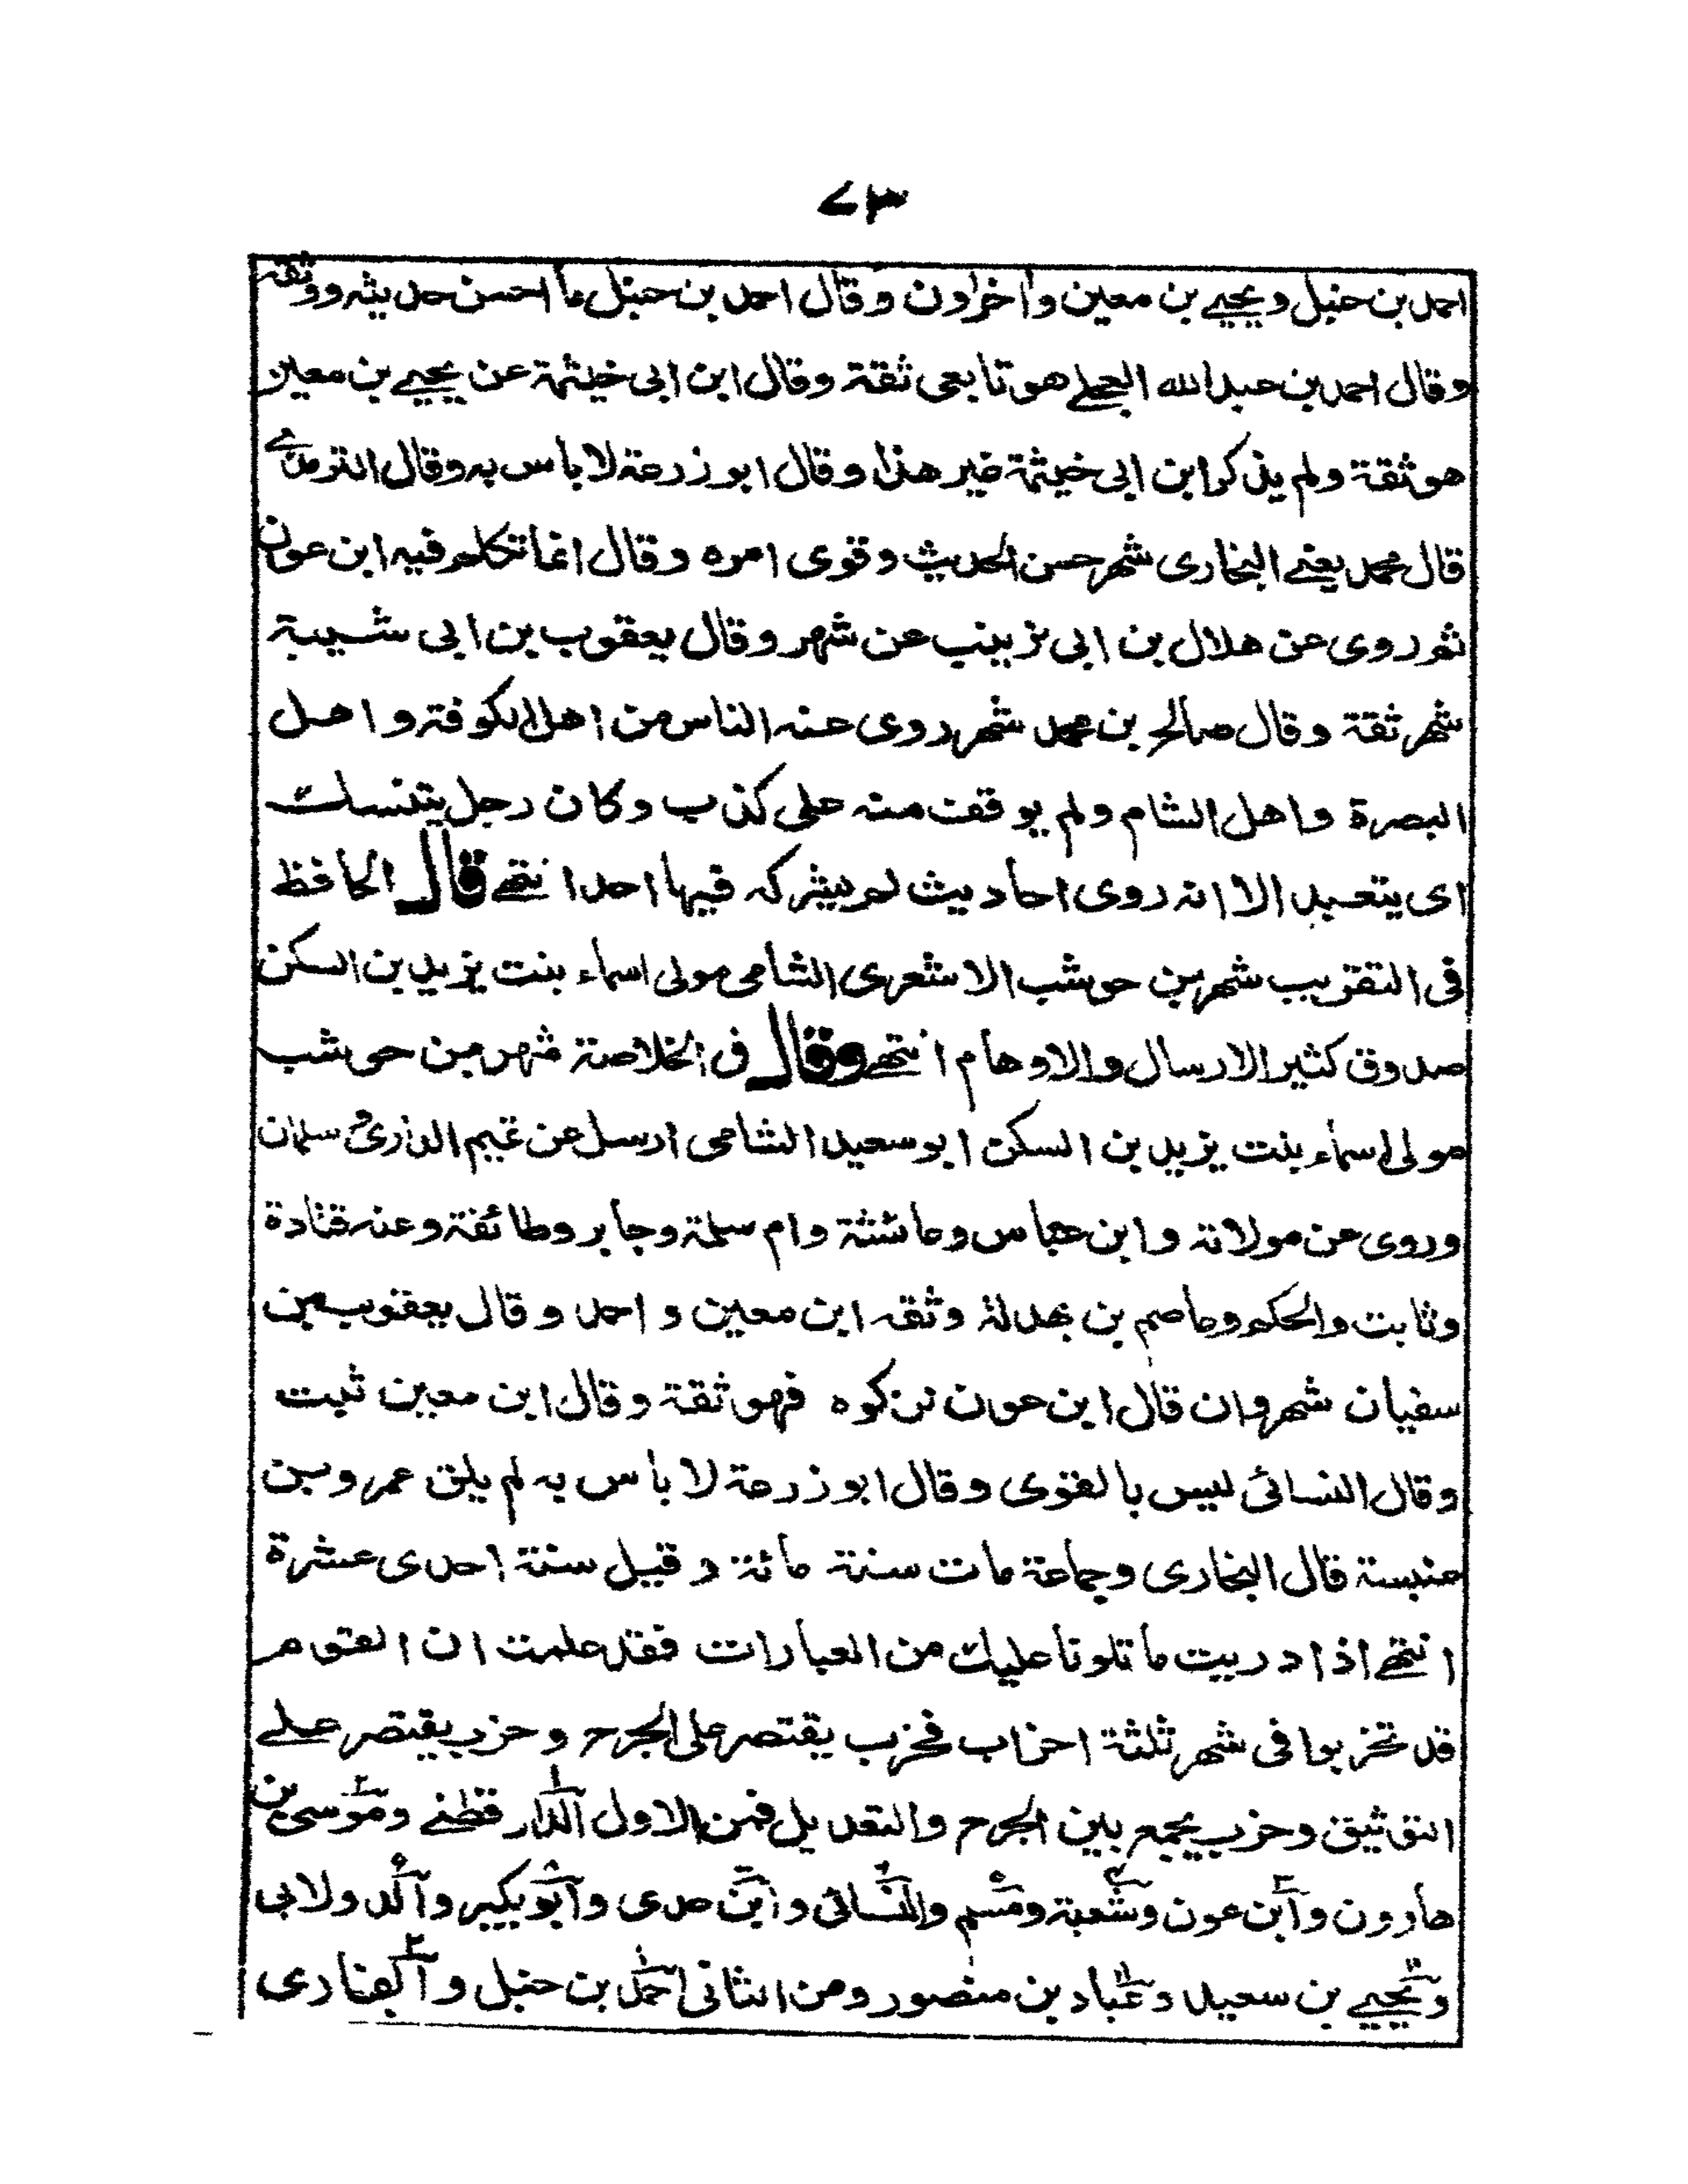 ٧٣
احمد بن حنبل ويحيے بن معين وآخرون وقال احمد بن حنبل ما احسن حديثه ووثقه
وقال احمد بن عبد الله العجلے هو تابعى ثقة وقال ابن ابى خيثمة عن يحيے بن معين
هو ثقة ولم يذكر ابن ابى خيثمة غير هذا وقال ابو زرعة لا باس به وقال الترمذے
قال محمد يعنے البخارى شهر حسن الحديث وقوى امره وقال انما تكلم فيه ابن عون
ثم روى عن هلال بن ابى زينب عن شهر وقال يعقوب بن ابى شيبة
شهر ثقة وقال صالح بن محمد شهر روى عنه الناس من اهل الكوفة واهل
البصرة واهل الشام ولم يوقف منه على كذب وكان رجل يتنسك
اى يتعبد الا انه روى احاديث لم يشركه فيها احد انتهے قال الحافظ
فى التقريب شهر بن حوشب الاشعرى الشامى مولى اسماء بنت يزيد بن السكن
صدوق كثير الارسال والاوهام انتهے وقال فى الخلاصة شهر بن حوشب
مولى اسماء بنت يزيد بن السكن ابو سعيد الشامى ارسل عن تميم الدارى وسلمان
وروى عن مولاته وابن عباس وعائشة وام سلمة وجابر وطائفة وعنه قتادة
وثابت والحكم وعاصم بن بهدلة وثقه ابن معين واحمد وقال يعقوب بن
سفيان شهر وان قال ابن عون نزكوه فهو ثقة وقال ابن معين ثبت
وقال النسائى ليس بالقوى وقال ابو زرعة لا باس به لم يلق عمرو بن
عنبسة قال البخارى وجماعة مات سنة مائة وقيل سنة احدى عشرة
انتهے اذا دريت ما تلونا عليك من العبارات فقد علمت ان القوم
قد تحزبوا فى شهر ثلثة احزاب فحزب يقتصر على الجرح وحزب يقتصر علے
التوثيق وحزب يجمع بين الجرح والتعديل فمن الاول الدارقطنے وموسى بن
هارون وابن عون وشعبة ومسلم والنسائى وابن عدى وابو بكير والدولابى
ويحيے بن سعيد وعباد بن منصور ومن الثانى احمد بن حنبل والبخارى